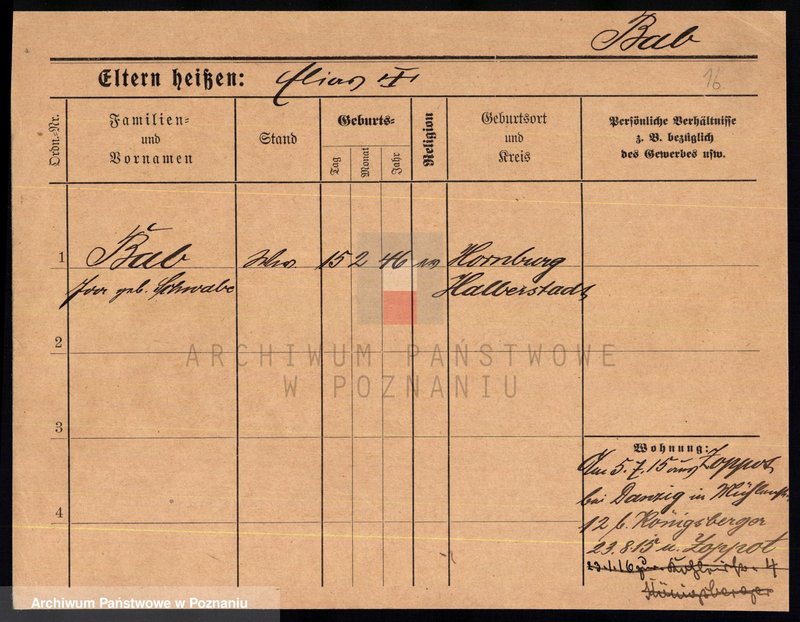 Bab
Eltern heißen: Elias
16
Ordn.-Nr.
Familien-
und
Vornamen
Stand
Geburts-
Tag
Monat
Jahr
Religion
Geburtsort
und
Kreis
Persönliche Verhältnisse
z. B. bezüglich
des Gewerbes usw.
1 Bab 15 2 46 Hornburg
geb. Schwabe Halberstadt
2
ARCHIWUM PAŃSTWOWE
W POZNANIU
3
Wohnung:
5.7.15 Zoppot
bei Danzig in
4
12 b. Königsberger
23.8.15 n. Zoppot
4
Königsberger
Archiwum Państwowe w Poznaniu